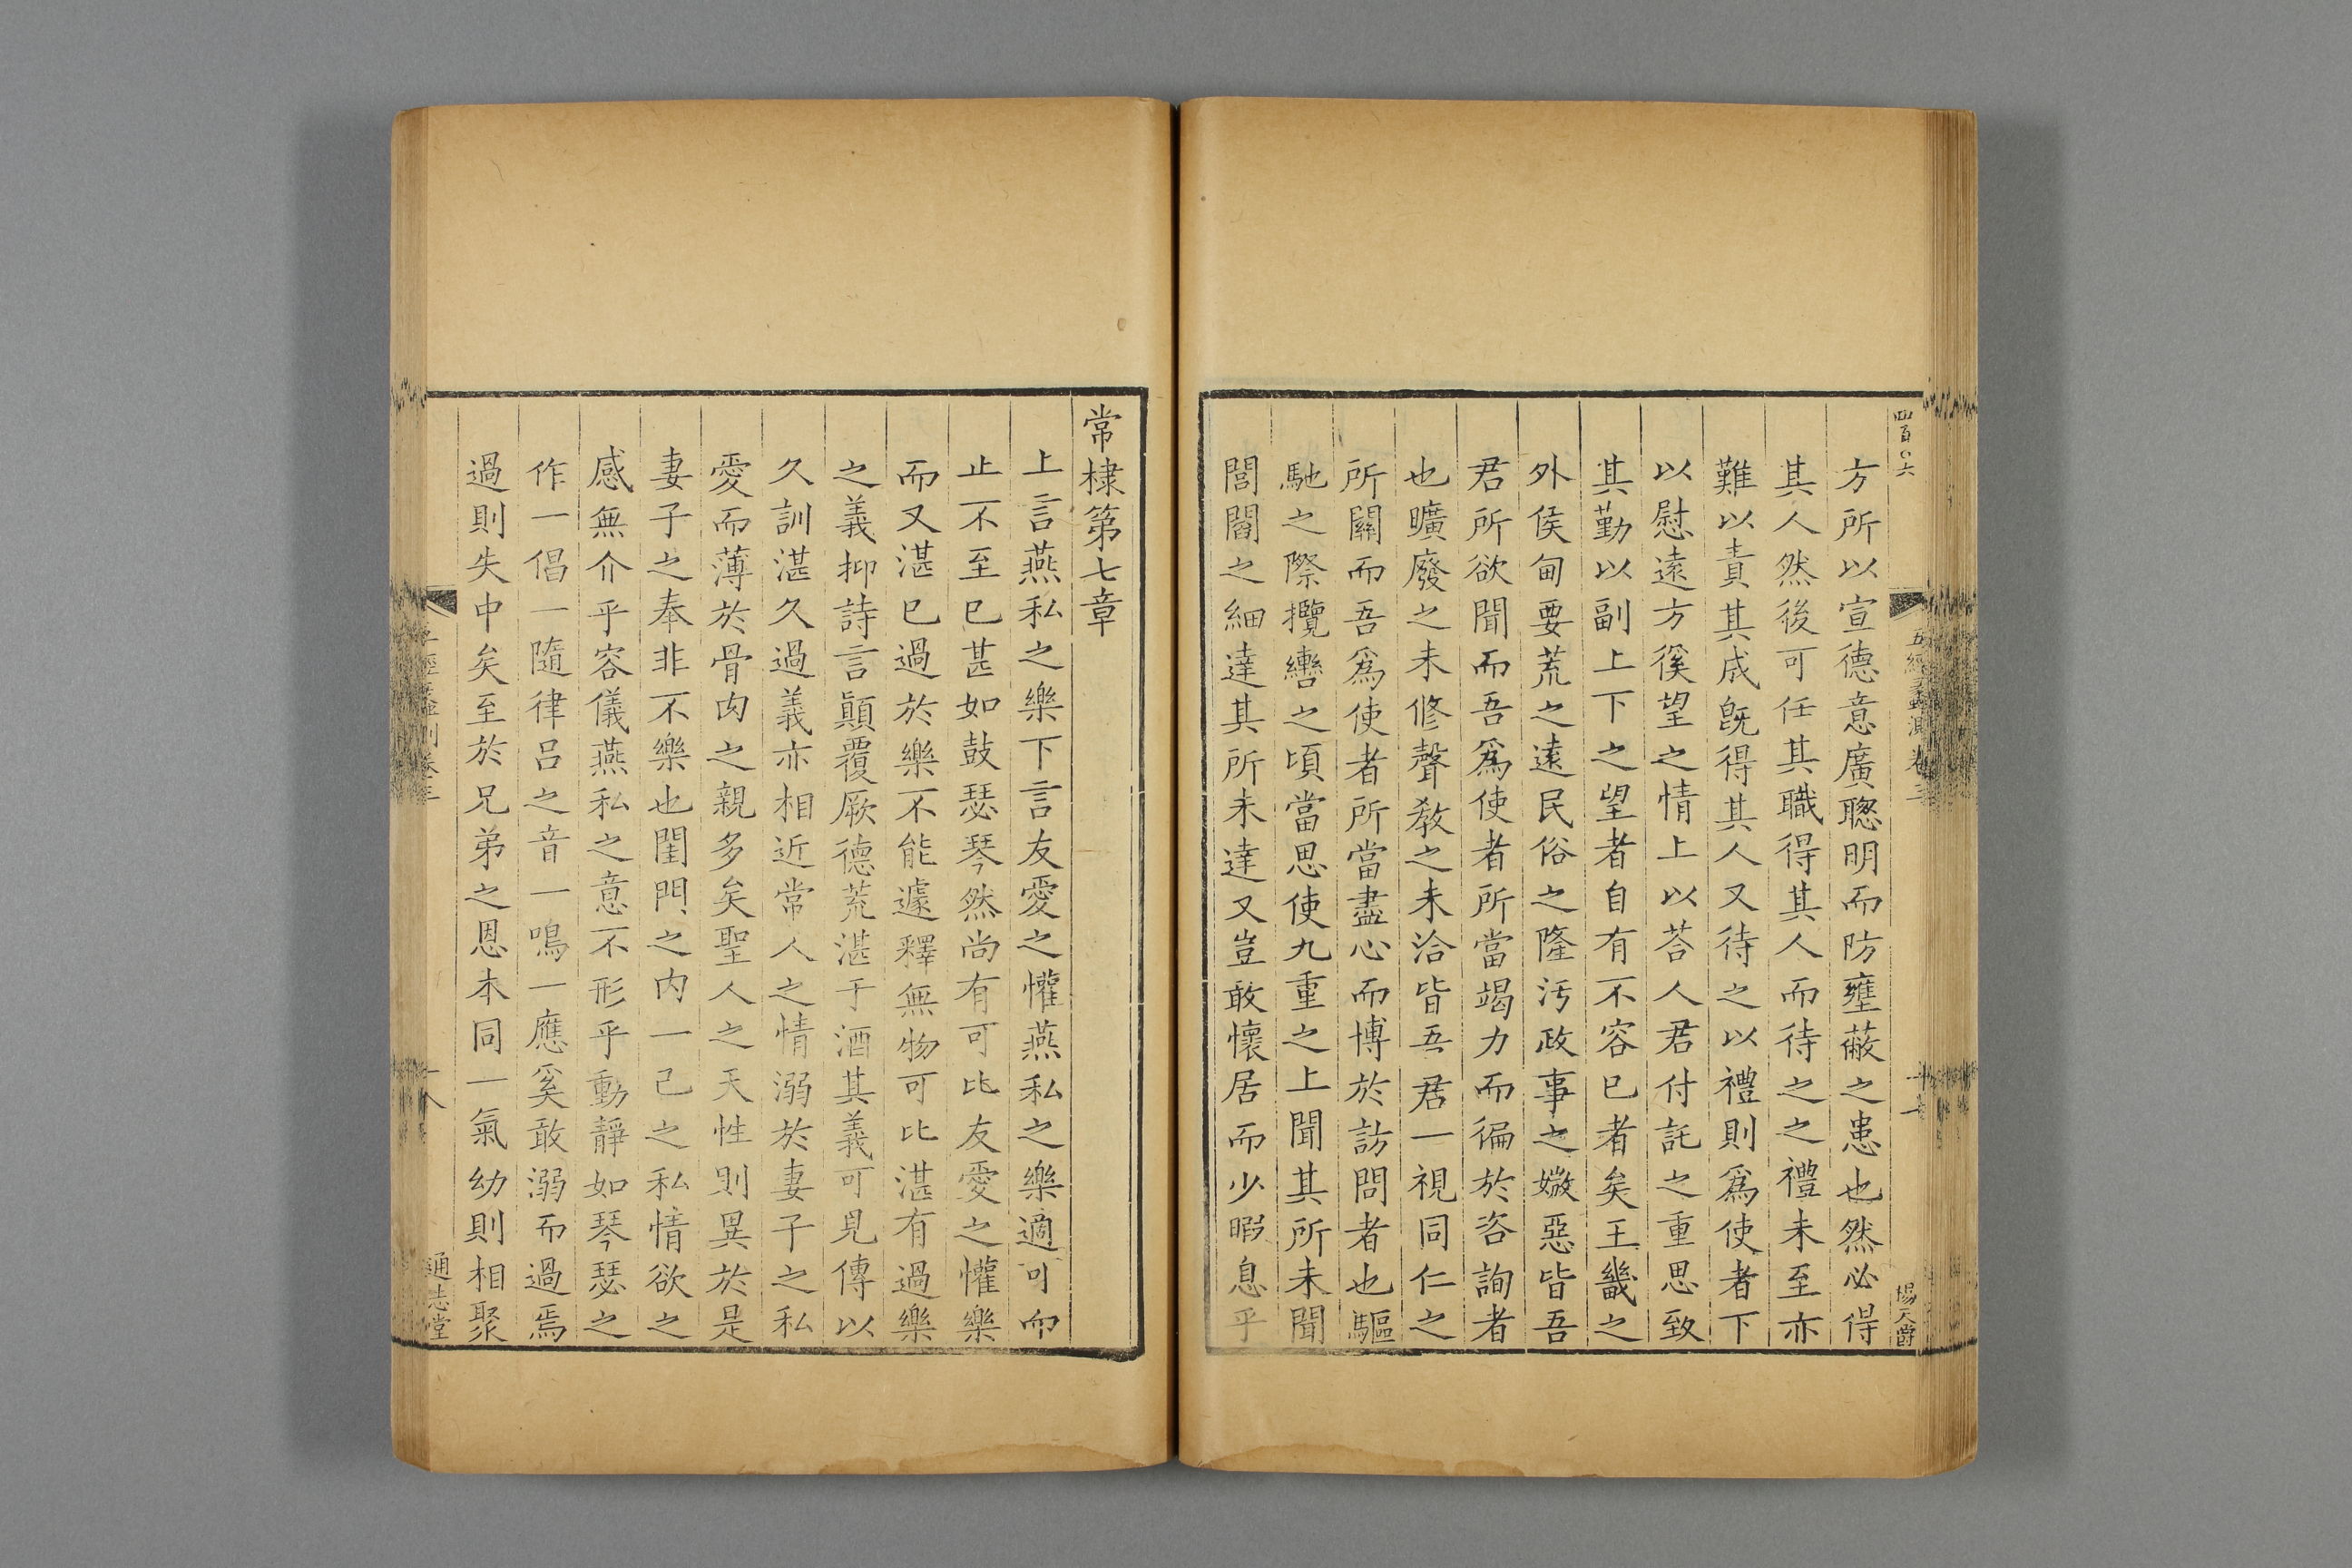 四百〇六
五經蠡測卷三
楊天爵
方所以宣德意廣聰明而防壅蔽之患也然必得
其人然後可任其職得其人而待之之禮未至亦
難以責其成旣得其人又待之以禮則爲使者下
以慰遠方徯望之情上以荅人君付託之重思致
其勤以副上下之望者自有不容已者矣王畿之
外侯甸要荒之遠民俗之隆汚政事之媺惡皆吾
君所欲聞而吾爲使者所當竭力而徧於咨詢者
也曠廢之未修聲教之未洽皆吾君一視同仁之
所關而吾爲使者所當盡心而博於訪問者也驅
馳之際攬轡之頃當思使九重之上聞其所未聞
閭閻之細達其所未達又豈敢懷居而少暇息乎
常棣第七章
上言燕私之樂下言友愛之懽燕私之樂適可而
止不至已甚如鼓瑟琴然尚有可比友愛之懽樂
而又湛已過於樂不能遽釋無物可比湛有過樂
之義抑詩言顛覆厥德荒湛于酒其義可見傳以
久訓湛久過義亦相近常人之情溺於妻子之私
愛而薄於骨肉之親多矣聖人之天性則異於是
妻子之奉非不樂也閨門之内一己之私情欲之
感無介乎容儀燕私之意不形乎動靜如琴瑟之
作一倡一隨律呂之音一鳴一應奚敢溺而過焉
過則失中矣至於兄弟之恩本同一氣幼則相聚
十八
通志堂